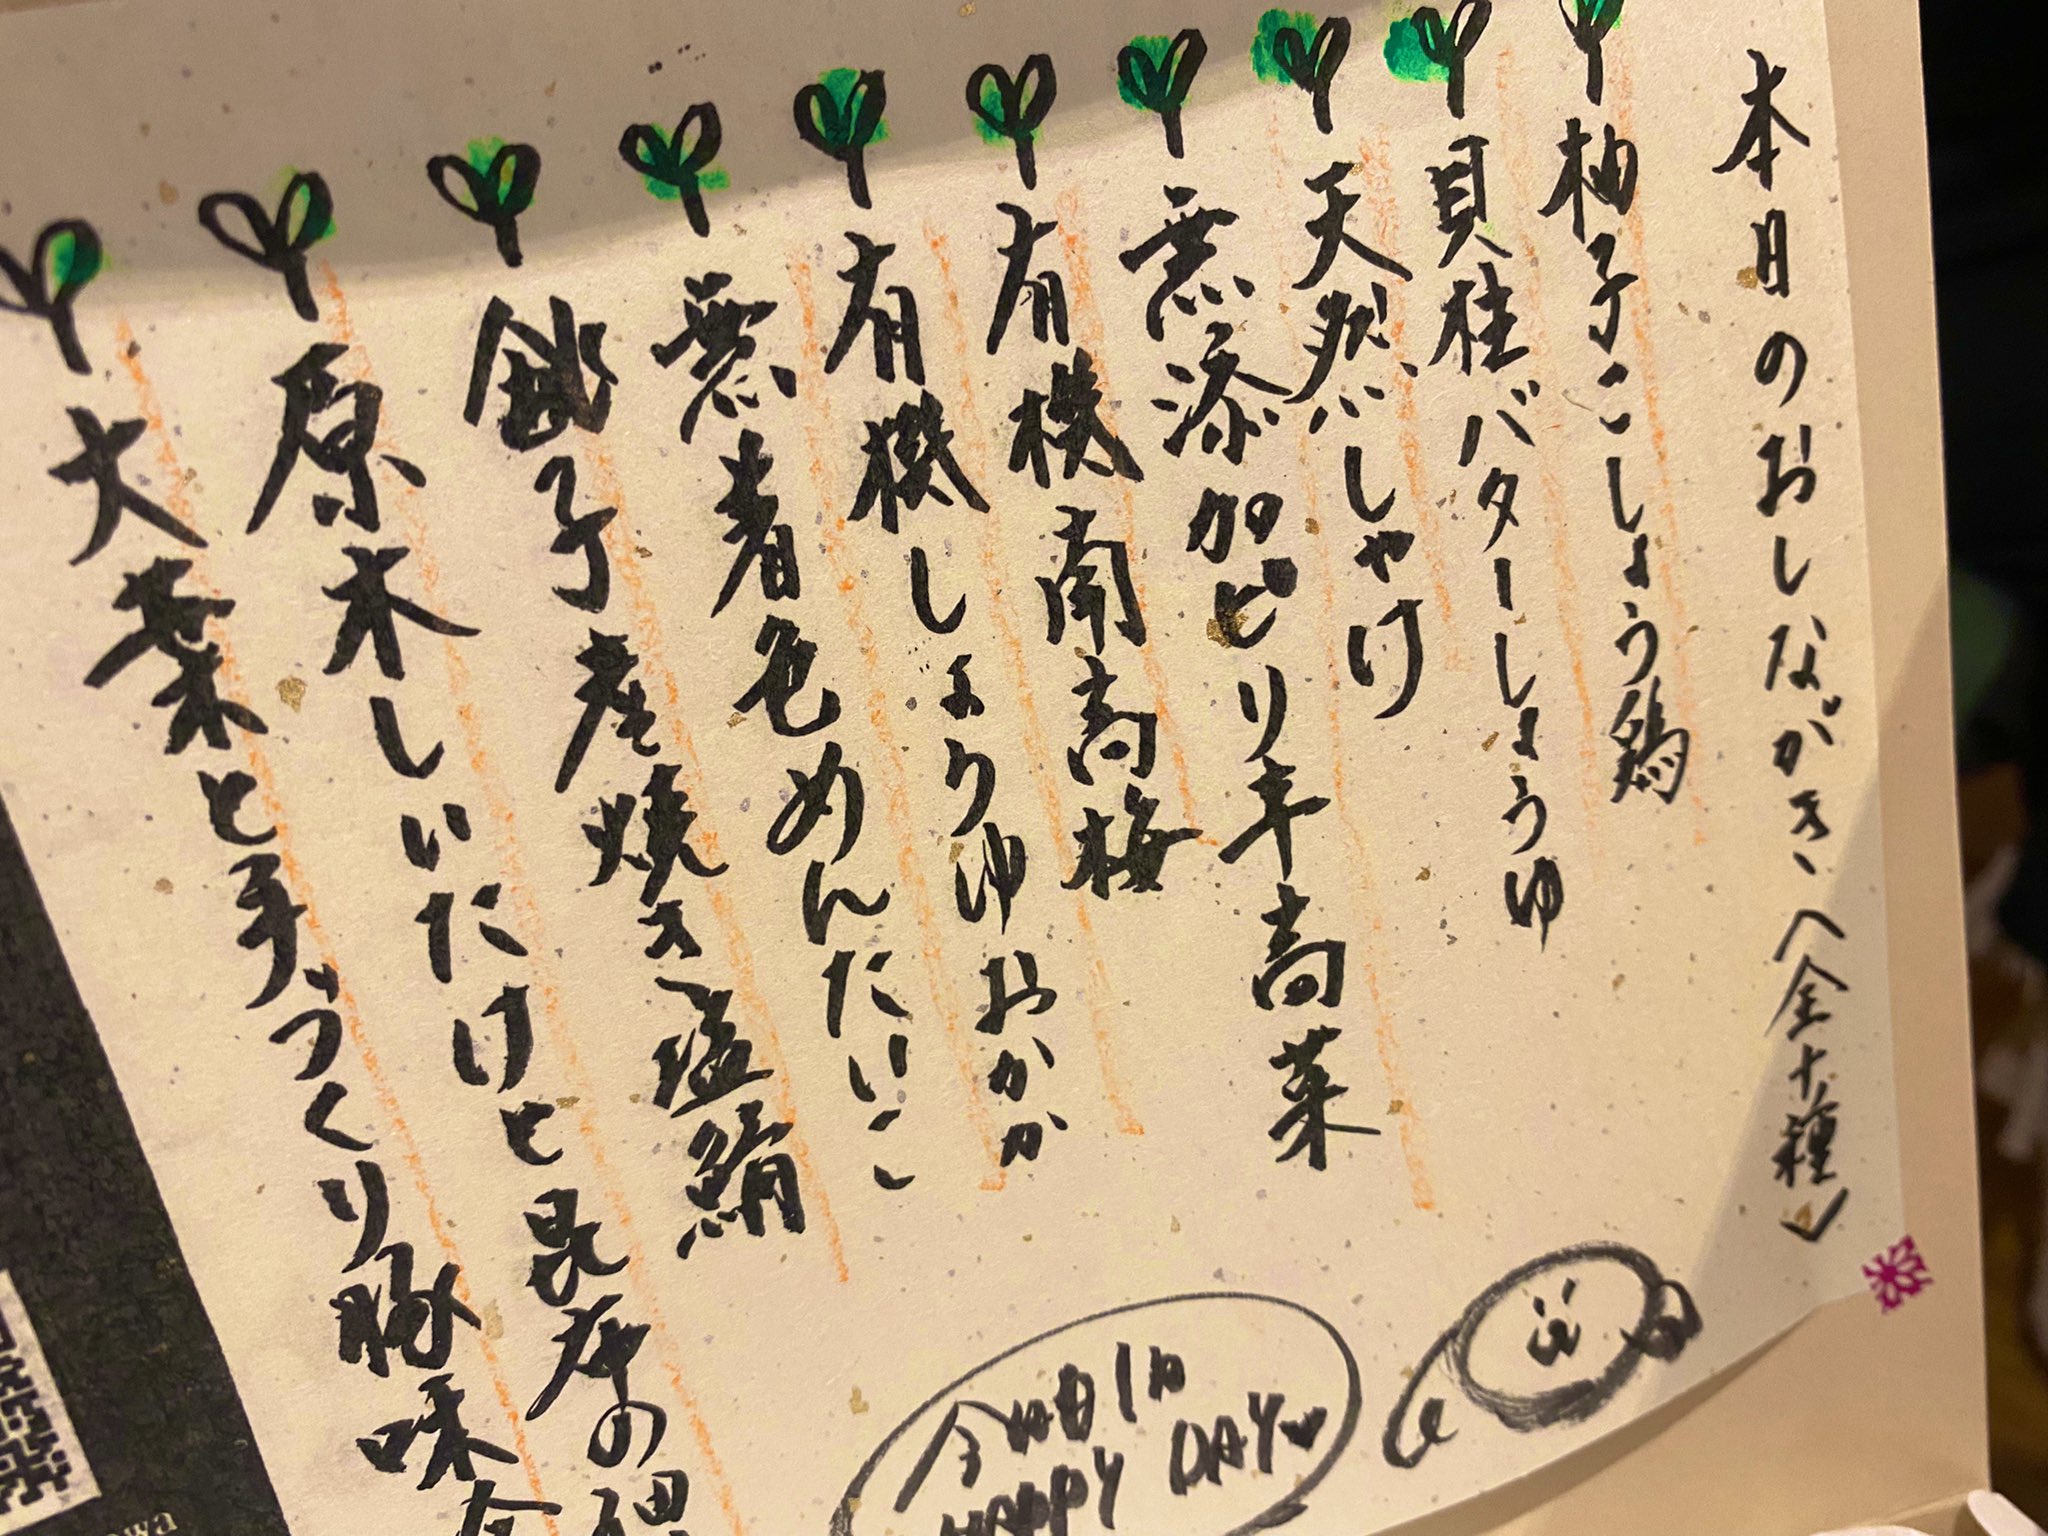 本日のおしながき〈全十種〉
柚子こしょう鶏
貝柱バターしょうゆ
天然しゃけ
無添加ピリ辛高菜
有機南高梅
有機しょうゆおかか
無着色めんたいこ
銚子産焼き塩鯖
原木しいたけと昆布の
大葉と手づくり豚味
今日も1日
HAPPY DAY♥
owa